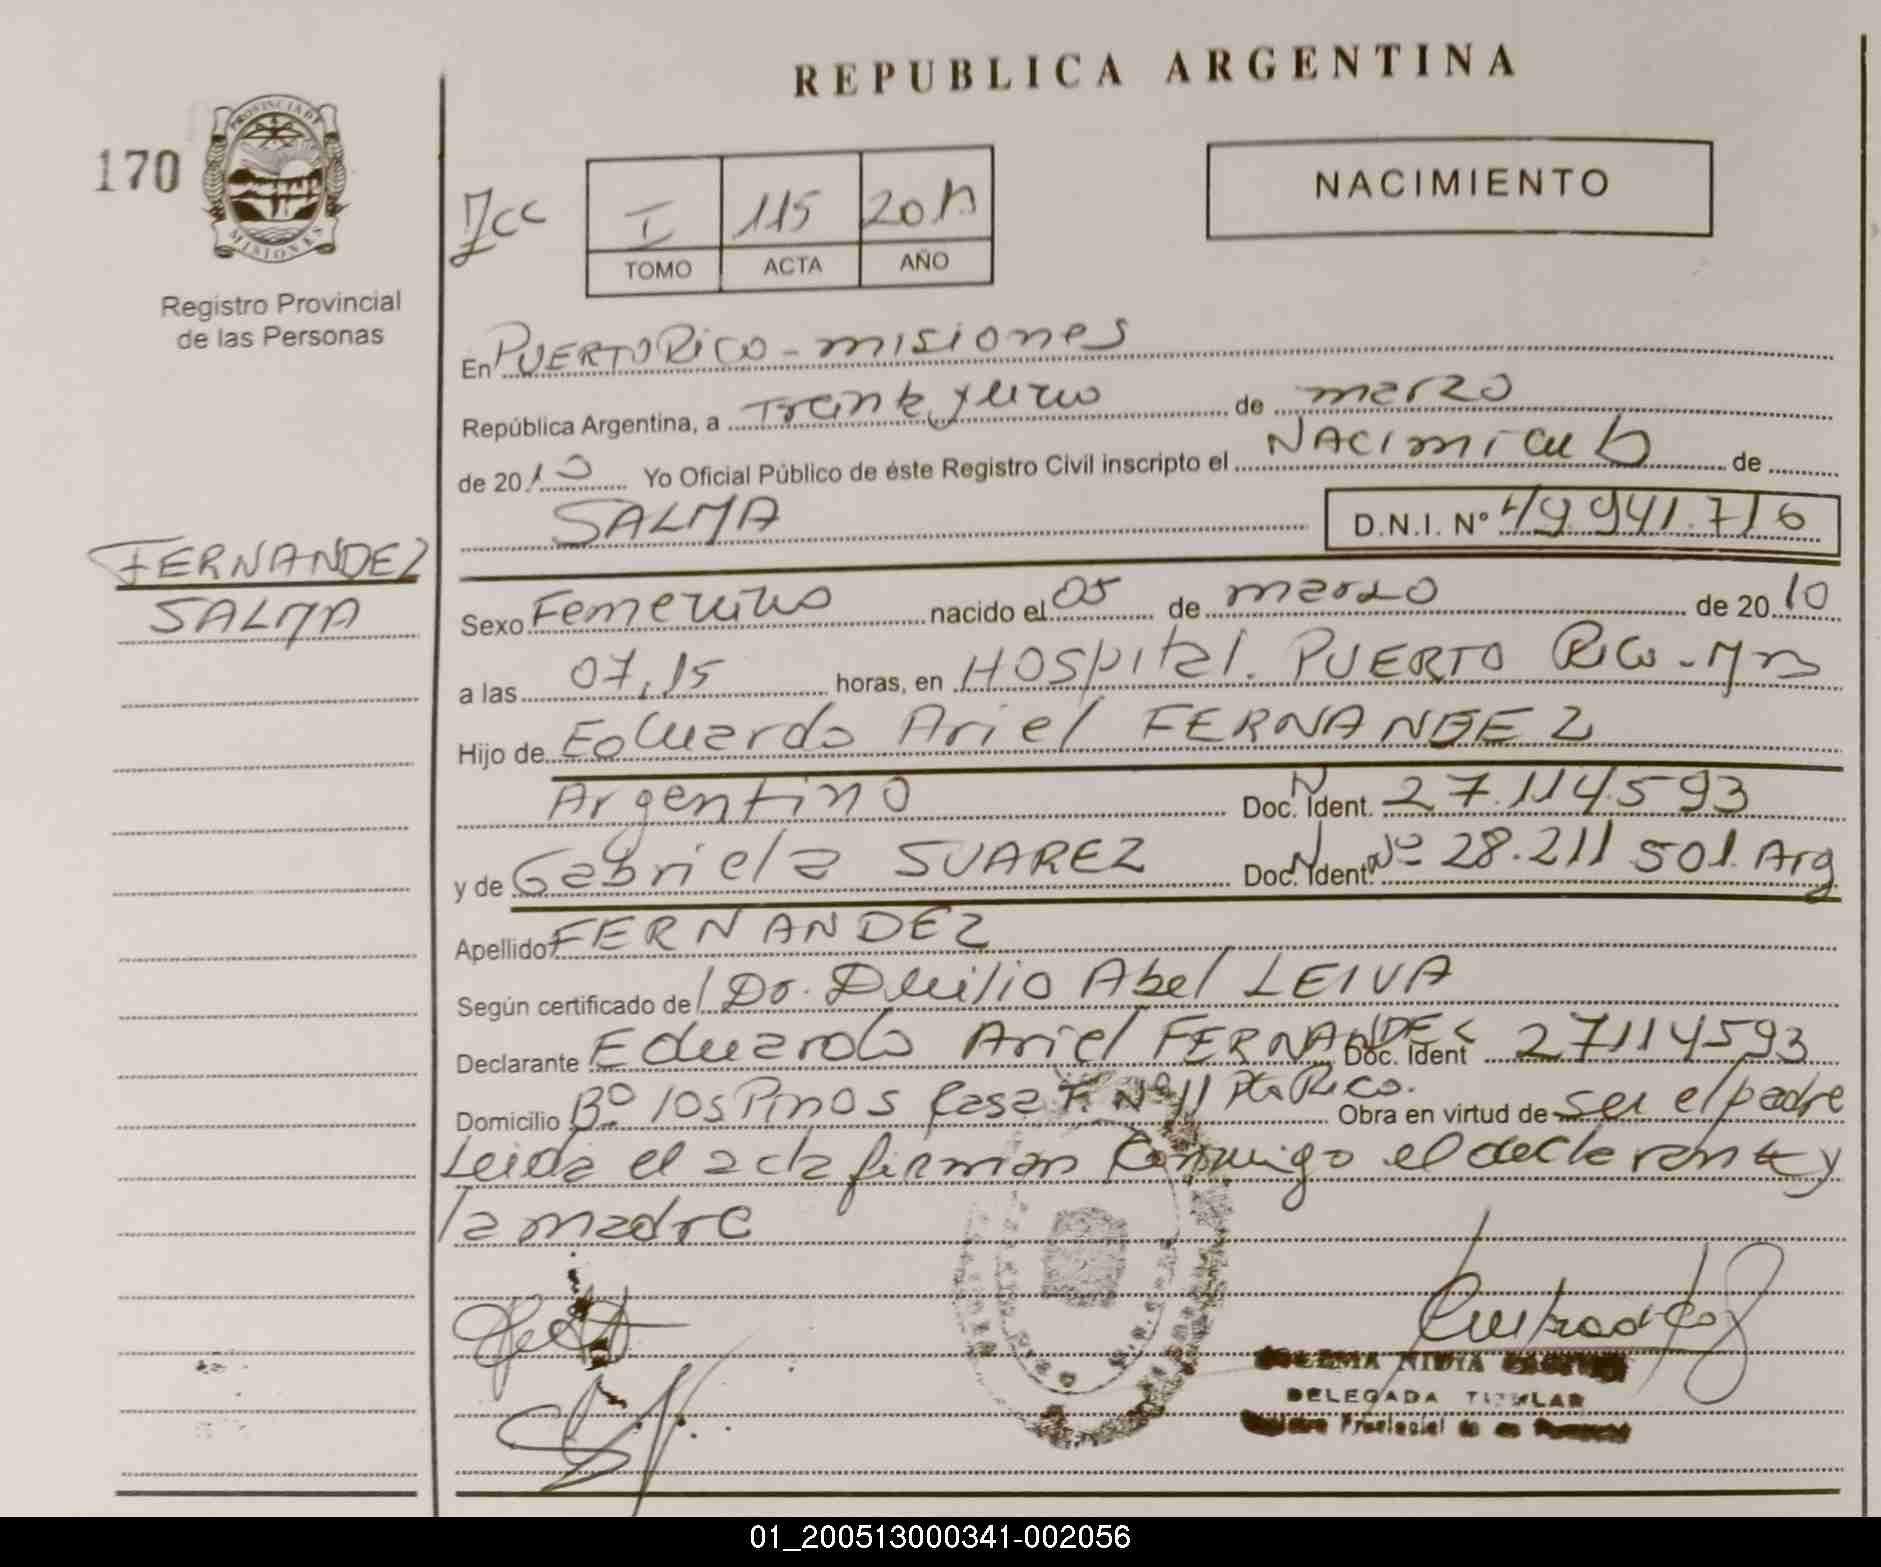 REPUBLICA ARGENTINA
170
PROVINCIA DE
MISIONES
Registro Provincial
de las Personas
NACIMIENTO
I 115
TOMO ACTA AÑO
En PUERTO RICO - misiones
República Argentina, a Treinta y uno de marzo
de 2010 Yo Oficial Público de éste Registro Civil inscripto el NACimiento de
SALMA D.N.I. Nº 49.941.716
FERNANDEZ
SALMA
Sexo Femenino nacido el 05 de marzo de 2010
a las 07,15 horas, en HOspital. PUERTO Rico - Mns
Hijo de Eduardo Ariel FERNANDEZ
Argentino Doc. Ident. 27.114.593
y de Gabriela SUAREZ Doc. Ident. Nº 28.211 501. Arg
Apellido FERNANDEZ
Según certificado del Dr. Duilio Abel LEIVA
Declarante Eduardo Ariel FERNANDEZ Doc. Ident 27114593
Domicilio Bº los Pinos Casa Nº 11 Pto Rico. Obra en virtud de ser el padre
Leida el acta firman Conmigo el declarante y
la madre
NIDIA
DELEGADA TITULAR
01_200513000341-002056